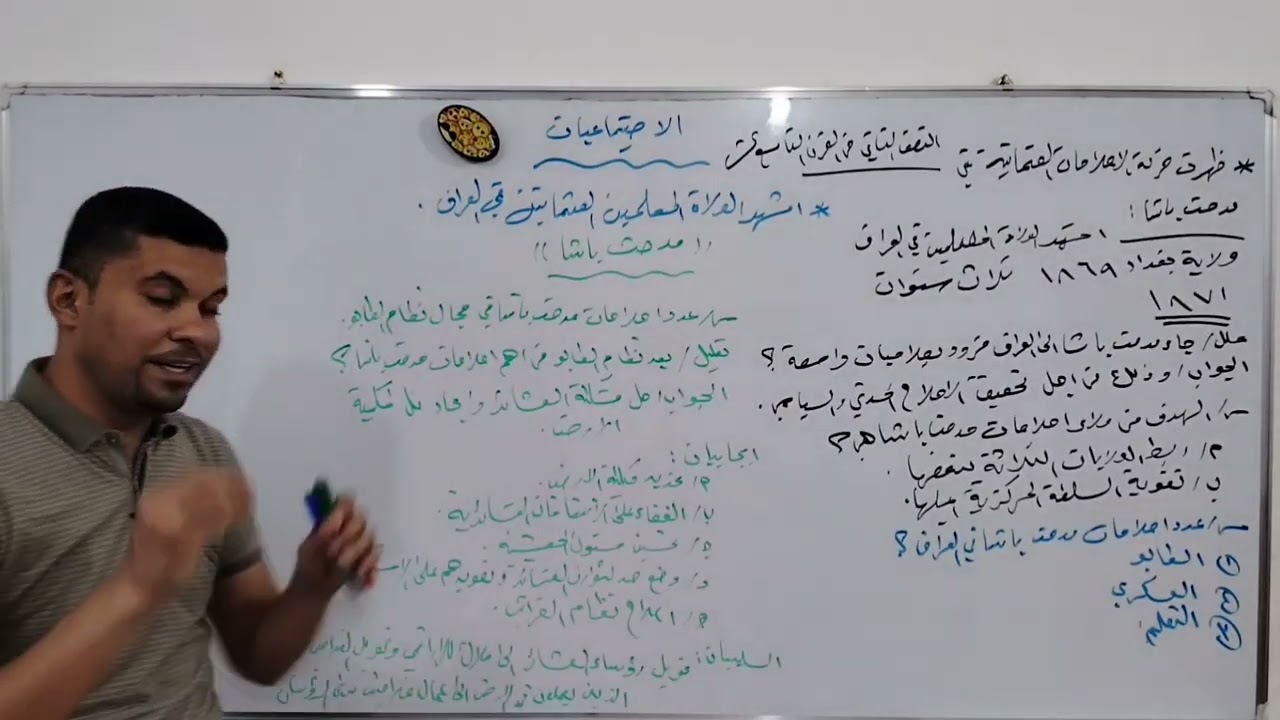 الاجتماعيات
* ظهرت حركة الاصلاحات العثمانية في النصف الثاني من القرن التاسع عشر
مدحت باشا :
اشهر الولاة المصلحين في العراق
ولاية بغداد ١٨٦٩ ثلاث سنوات
١٨٧١
علل / جاء مدحت باشا الى العراق مزود بصلاحيات واسعة ؟
الجواب / وذلك من اجل تحقيق الاصلاح و السياسي .
س / الهدف من وراء اصلاحات مدحت باشا هي ؟
أ / ربط الولايات الثلاثة ببعضها .
ب / تقوية السلطة المركزية عليها .
س / عدد اصلاحات مدحت باشا في العراق ؟
① الطابو
② العسكري
③ التعليم
* اشهر الولاة المصلحين العثمانيين في العراق .
(( مدحت باشا ))
س / عدد اصلاحات مدحت باشا في مجال نظام الطابو .
تعليل / يعد نظام الطابو من اهم اصلاحات مدحت باشا ؟
الجواب / حل مشكلة العشائر وايجاد حل لملكية
الارض .
ايجابيات :
أ / تحديد ملكية الارض .
ب / القضاء على العشائرية .
ج / تحسن مستوى المعيشة .
د / وضع حد العشائر على
السلبيات : تحويل رؤساء العشائر الى ملاك للاراضي وتحويل
الذين يعملون الارض الى عمال